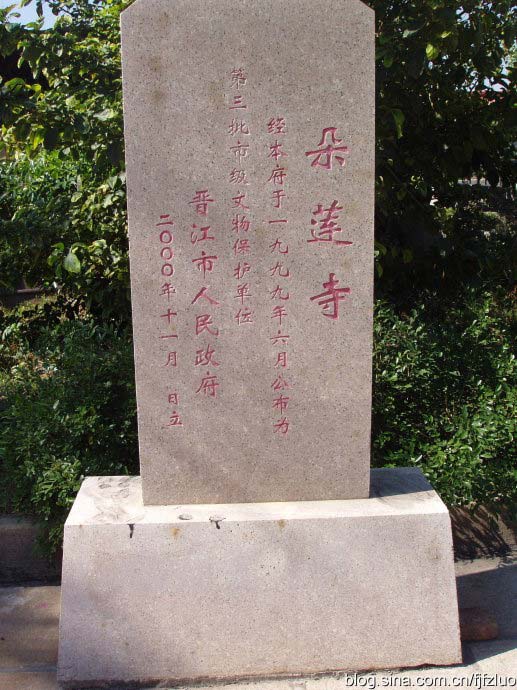 朵莲寺
经本府于一九九九年六月公布为
第三批市级文物保护单位
晋江市人民政府
二000年十一月 日立
blog.sina.com.cn/fjfzluo